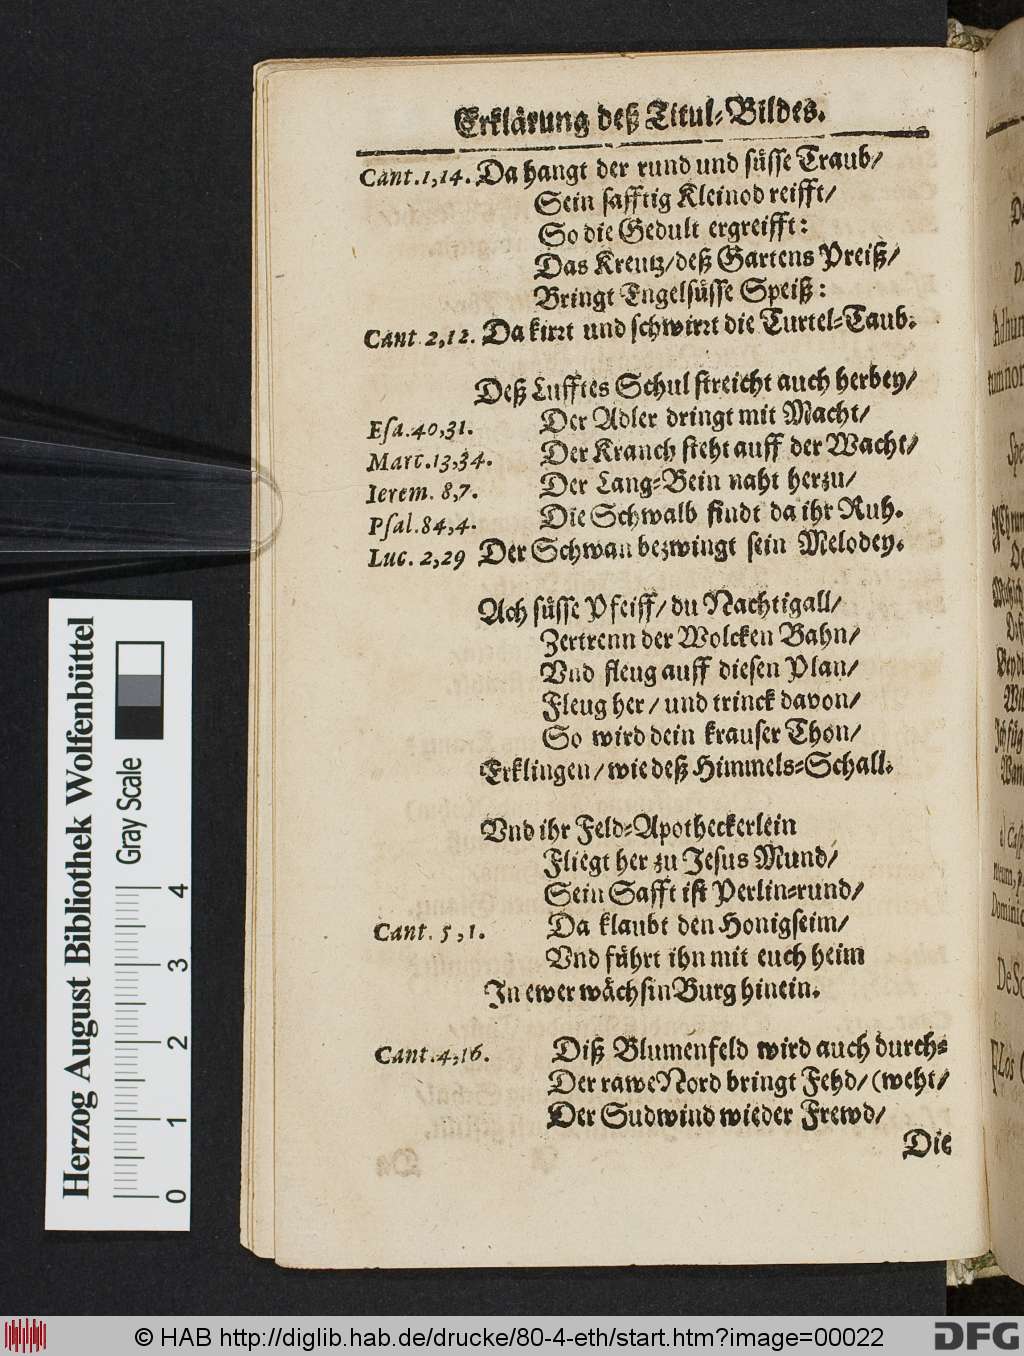 Erklärung deß Titul-Bildes.
Cant.1,14. Da hangt der rund und süsse Traub/
Sein safftig Kleinod reifft/
So die Gedult ergreifft:
Das Kreutz/deß Gartens Preiß/
Bringt Engelsüsse Speiß:
Cant 2,12. Da kirrt und schwirrt die Turtel-Taub.
Deß Lufftes Schul streicht auch herbey/
Esa.40,31. Der Adler dringt mit Macht/
Marc.13,34. Der Kranch steht auff der Wacht/
Ierem. 8,7. Der Lang-Bein naht herzu/
Psal.84,4. Die Schwalb findt da ihr Ruh.
Luc. 2,29 Der Schwan bezwingt sein Melodey.
Ach süsse Pfeiff/ du Nachtigall/
Zertrenn der Wolcken Bahn/
Vnd fleug auff diesen Plan/
Fleug her/ und trinck davon/
So wird dein krauser Thon/
Erklingen/ wie deß Himmels-Schall.
Vnd ihr Feld-Apotheckerlein
Fliegt her zu Jesus Mund/
Sein Safft ist Perlin-rund/
Cant. 5,1. Da klaubt den Honigseim/
Vnd führt ihn mit euch heim
In ewer wächsin Burg hinein.
Cant.4,16. Diß Blumenfeld wird auch durch-
Der rawe Nord bringt Fehd/ (weht/
Der Sudwind wieder Frewd/
Die
Herzog August Bibliothek Wolfenbüttel
Gray Scale
0 1 2 3 4
© HAB http://diglib.hab.de/drucke/80-4-eth/start.htm?image=00022
DFG